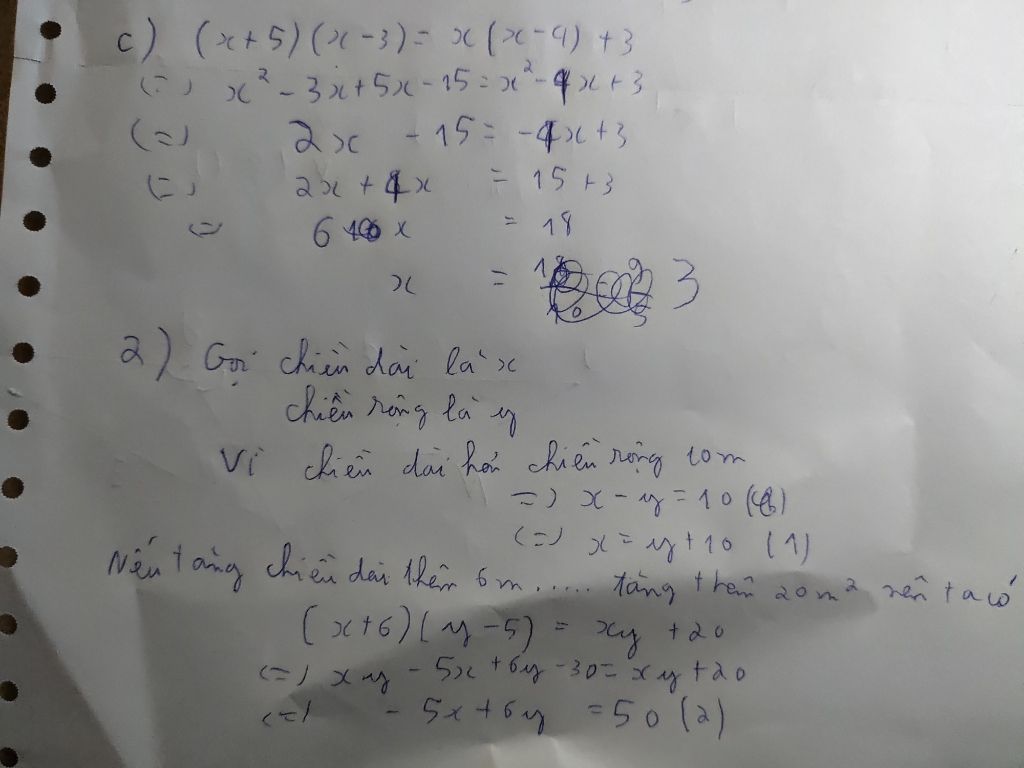 c) (x+5)(x-3) = x(x-4) +3
(=) x² - 3x + 5x - 15 = x² - 4x + 3
(=) 2x - 15 = -4x + 3
(=) 2x + 4x = 15 + 3
(=) 6 x = 18
x = 3
2) Gọi chiều dài là x
chiều rộng là y
Vì chiều dài hơn chiều rộng 10m
=) x - y = 10
(=) x = y + 10 (1)
Nếu tăng chiều dài thêm 6m ..... tăng thêm 20m² nên ta có
(x+6)(y-5) = xy + 20
(=) xy - 5x + 6y - 30 = xy + 20
(=) - 5x + 6y = 50 (2)